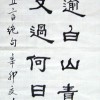 逾白山青
又過何日
絕句辛卯